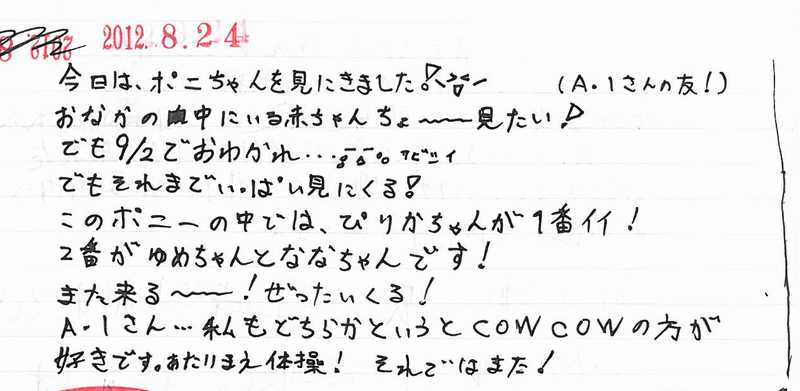 2012.8.24
今日は、ポニちゃんを見にきました! (A.1さんの友!)
おなかの中にいる赤ちゃんちょ〜〜見たい!
でも9/2でおわかれ... サビシイ
でもそれまでいっぱい見にくる!
このポニーの中では、ぴりかちゃんが1番イイ!
2番がゆめちゃんとななちゃんです!
また来る〜〜!ぜったいくる!
A.1さん…私もどちらかというとCOWCOWの方が
好きです。あたりまえ体操! それではまた!